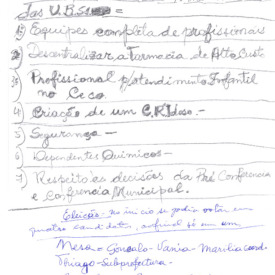 das U.B.S =
1) Equipes completa de profissionais
2 Descentralizar a Farmacia de Alto Custo
3) Profissional p/ atendimento Infantil
no Ceco
4) Criação de um C.R. Idoso.-
5) Segurança -
6 Dependentes Químicos -
7 Respeito as decisões da Pré Conferencia
e Conferencia Municipal.
Eleição: No inicio se podia votar em
quatro candidatos, só um
Mesa = Gonçalo - Vania - Marilia coord
Thiago - Subprefeitura -